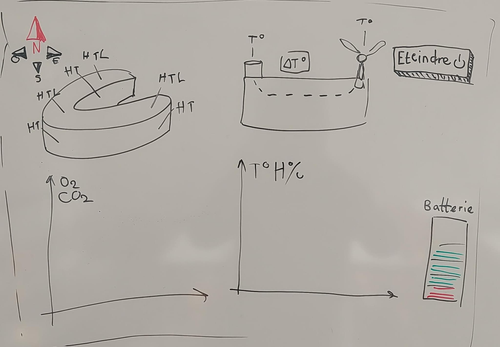 N
O
E
S
HTL
HT
HTL
HTL
HT
HT
T°
ΔT°
T°
Eteindre
O2
CO2
T° H%
Batterie